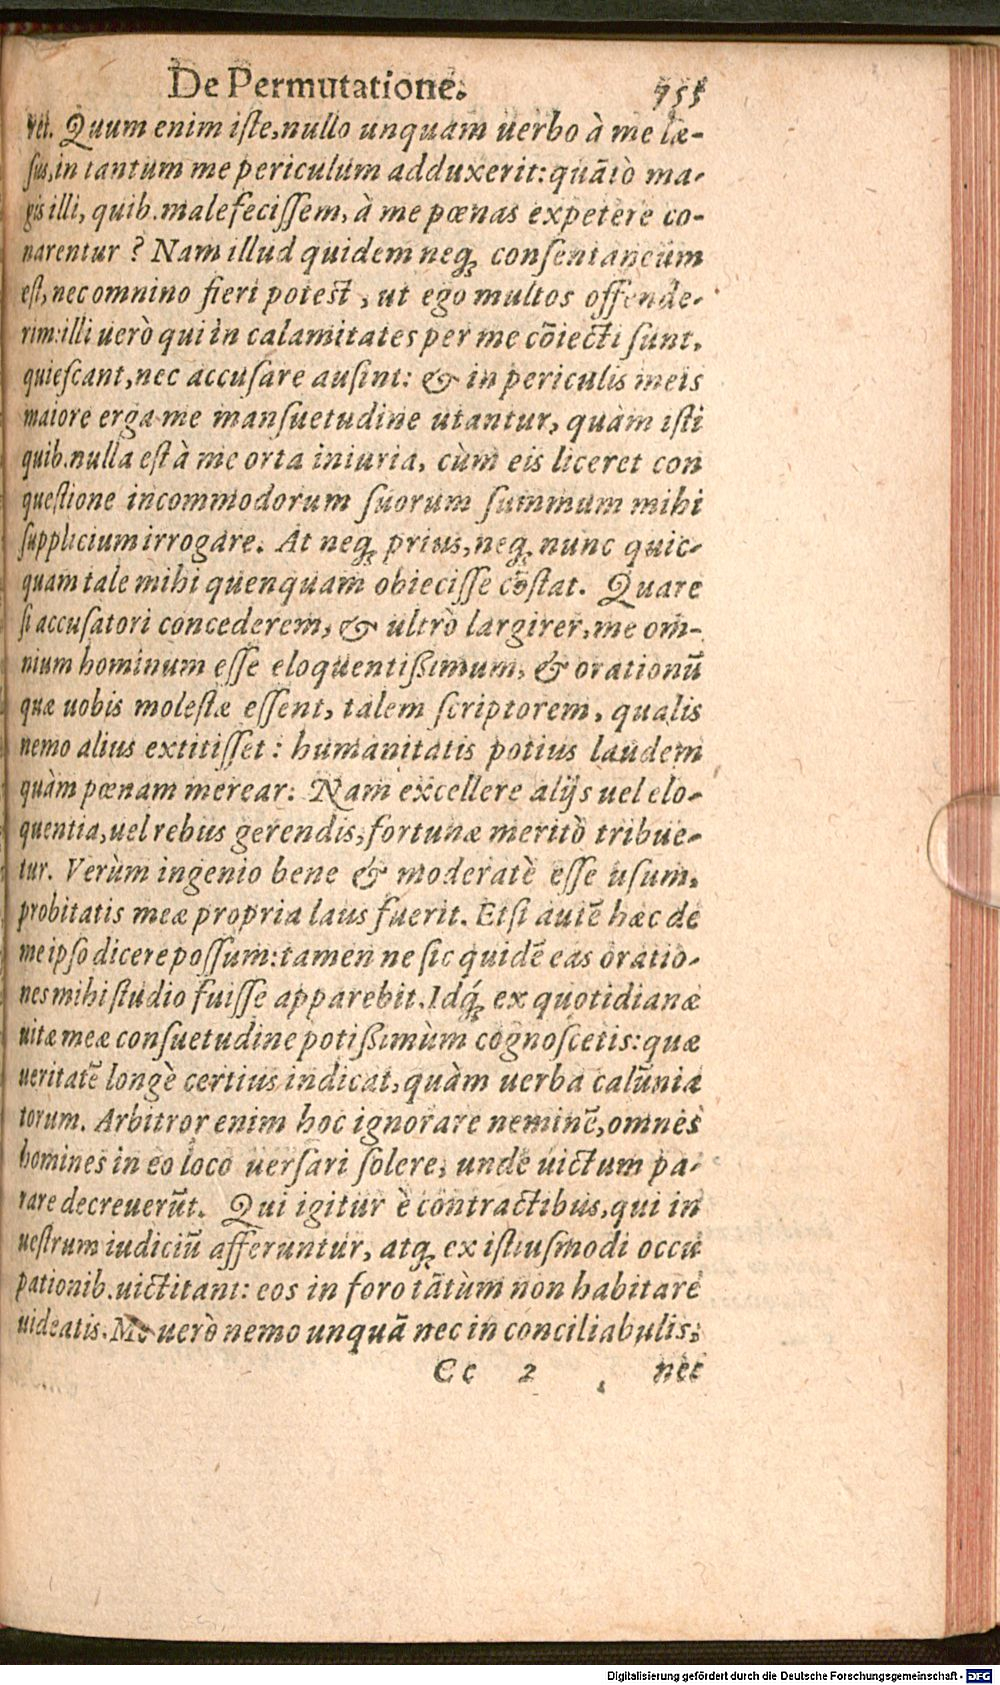 De Permutatione. 755
ret. Quum enim iste, nullo unquam uerbo à me læ-
sus, in tantum me periculum adduxerit: quãtò ma-
gis illi, quib. malefecissem, à me pœnas expetere co-
narentur? Nam illud quidem neq; consentaneum
est, nec omnino fieri potest, ut ego multos offende-
rim: illi uerò qui in calamitates per me cõiecti sunt,
quiescant, nec accusare ausint: & in periculis meis
maiore erga me mansuetudine utantur, quàm isti
quib. nulla est à me orta iniuria, cùm eis liceret con
questione incommodorum suorum summum mihi
supplicium irrogare. At neq; prius, neq; nunc quic-
quam tale mihi quenquam obiecisse cõstat. Quare
si accusatori concederem, & ultrò largirer, me om-
nium hominum esse eloquentißimum, & orationũ
quæ uobis molestæ essent, talem scriptorem, qualis
nemo alius extitisset: humanitatis potius laudem
quàm pœnam merear. Nam excellere alijs uel elo-
quentia, uel rebus gerendis, fortunæ meritò tribue-
tur. Verùm ingenio bene & moderatè esse usum,
probitatis meæ propria laus fuerit. Etsi autẽ hæc de
meipso dicere possum: tamen ne sic quidẽ eas oratio-
nes mihi studio fuisse apparebit. Idq́; ex quotidianæ
uitæ meæ consuetudine potißimùm cognoscetis: quæ
ueritatẽ longè certius indicat, quàm uerba calũnia
torum. Arbitror enim hoc ignorare neminẽ, omnes
homines in eo loco uersari solere, unde uictum pa-
rare decreuerũt. Qui igitur è contractibus, qui in
uestrum iudiciũ afferuntur, atq; ex istiusmodi occu
pationib. uictitant: eos in foro tãtùm non habitare
uideatis. Me uerò nemo unquã nec in conciliabulis,
Cc 2 nec
Digitalisierung gefördert durch die Deutsche Forschungsgemeinschaft - DFG